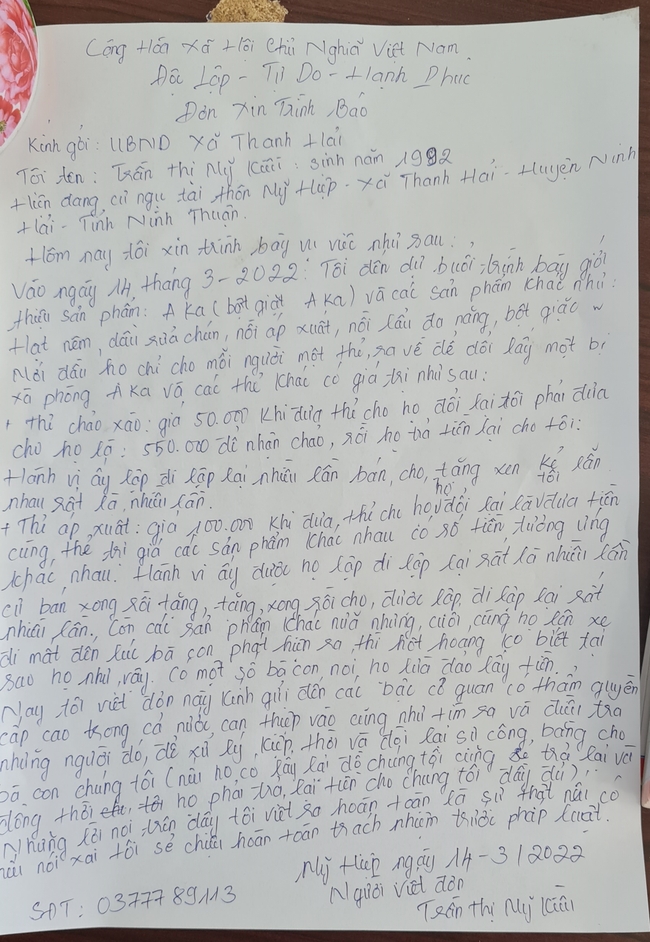 Cộng Hóa Xã Hội Chủ Nghĩa Việt Nam
Độc Lập - Tự Do - Hạnh Phúc
Đơn Xin Trình Báo
Kính gởi: UBND Xã Thanh Hải
Tôi tên: Trần Thị Mỹ Kiều: sinh năm 1992
Hiện đang cư ngụ tại thôn Mỹ Hiệp - Xã Thanh Hải - Huyện Ninh
Hải - Tỉnh Ninh Thuận.
Hôm nay tôi xin trình bày vụ việc như sau:
Vào ngày 14 tháng 3-2022: Tôi đến dự buổi trình bày giới
thiệu sản phẩm: AKa (bột giặt AKa) và các sản phẩm khác như:
Hạt nêm, dầu rửa chén, nồi áp xuất, nồi lẩu đa năng, bột giặc
Nơi đầu họ chỉ cho mỗi người một thẻ, ra về để đổi lấy một bị
xà phòng AKa và các thẻ khác có giá trị như sau:
+ Thẻ chảo xào: giá 50.000 khi đưa thẻ cho họ đổi lại tôi phải đưa
cho họ là: 550.000 để nhận chảo, rồi họ trả tiền lại cho tôi:
Hành vi ấy lập đi lập lại nhiều lần bán, cho, tặng xen kẻ lẫn
nhau rất là nhiều lần.
+ Thẻ áp xuất: giá 100.000 khi đưa thẻ cho họ tôi đổi lại là đưa tiền
cũng thế trị giá các sản phẩm khác nhau có số tiền tương ứng
khác nhau. Hành vi ấy được họ lập đi lập lại rất là nhiều lần
cứ bán xong rồi tặng, tặng xong rồi cho, được lập đi lập lại rất
nhiều lần. Còn các sản phẩm khác nữa nhưng cuối cùng họ lên xe
đi mất đến lúc bà con phát hiện ra thì hốt hoảng ko biết tại
sao họ như vậy. Có một số bà con nói họ lừa đảo lấy tiền.
Nay tôi viết đơn này kính gửi đến các bậc cơ quan có thẩm quyền
cấp cao trong cả nước can thiệp vào cũng như tìm ra và điều tra
những người đó, để xử lý kiệp thời và đòi lại sự công bằng cho
bà con chúng tôi (nếu họ có lấy lại đồ chúng tôi cũng sẽ trả lại với
đồng thời họ phải trả lại tiền cho chúng tôi đầy đủ)
Những lời nói trên đây tôi viết ra hoàn toàn là sự thật nếu có
nói xai tôi sẽ chiệu hoàn toàn trách nhiệm trước pháp luật.
Mỹ Hiệp ngày 14-3/2022
Người viết đơn
SĐT: 0377789113
Trần Thị Mỹ Kiều